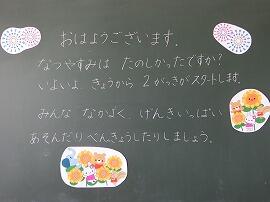 おはようございます。
なつやすみは たのしかったですか?
いよいよ きょうから 2がっきがスタートします。
みんな なかよく、げんきいっぱい
あそんだり べんきょうしたりしましょう。